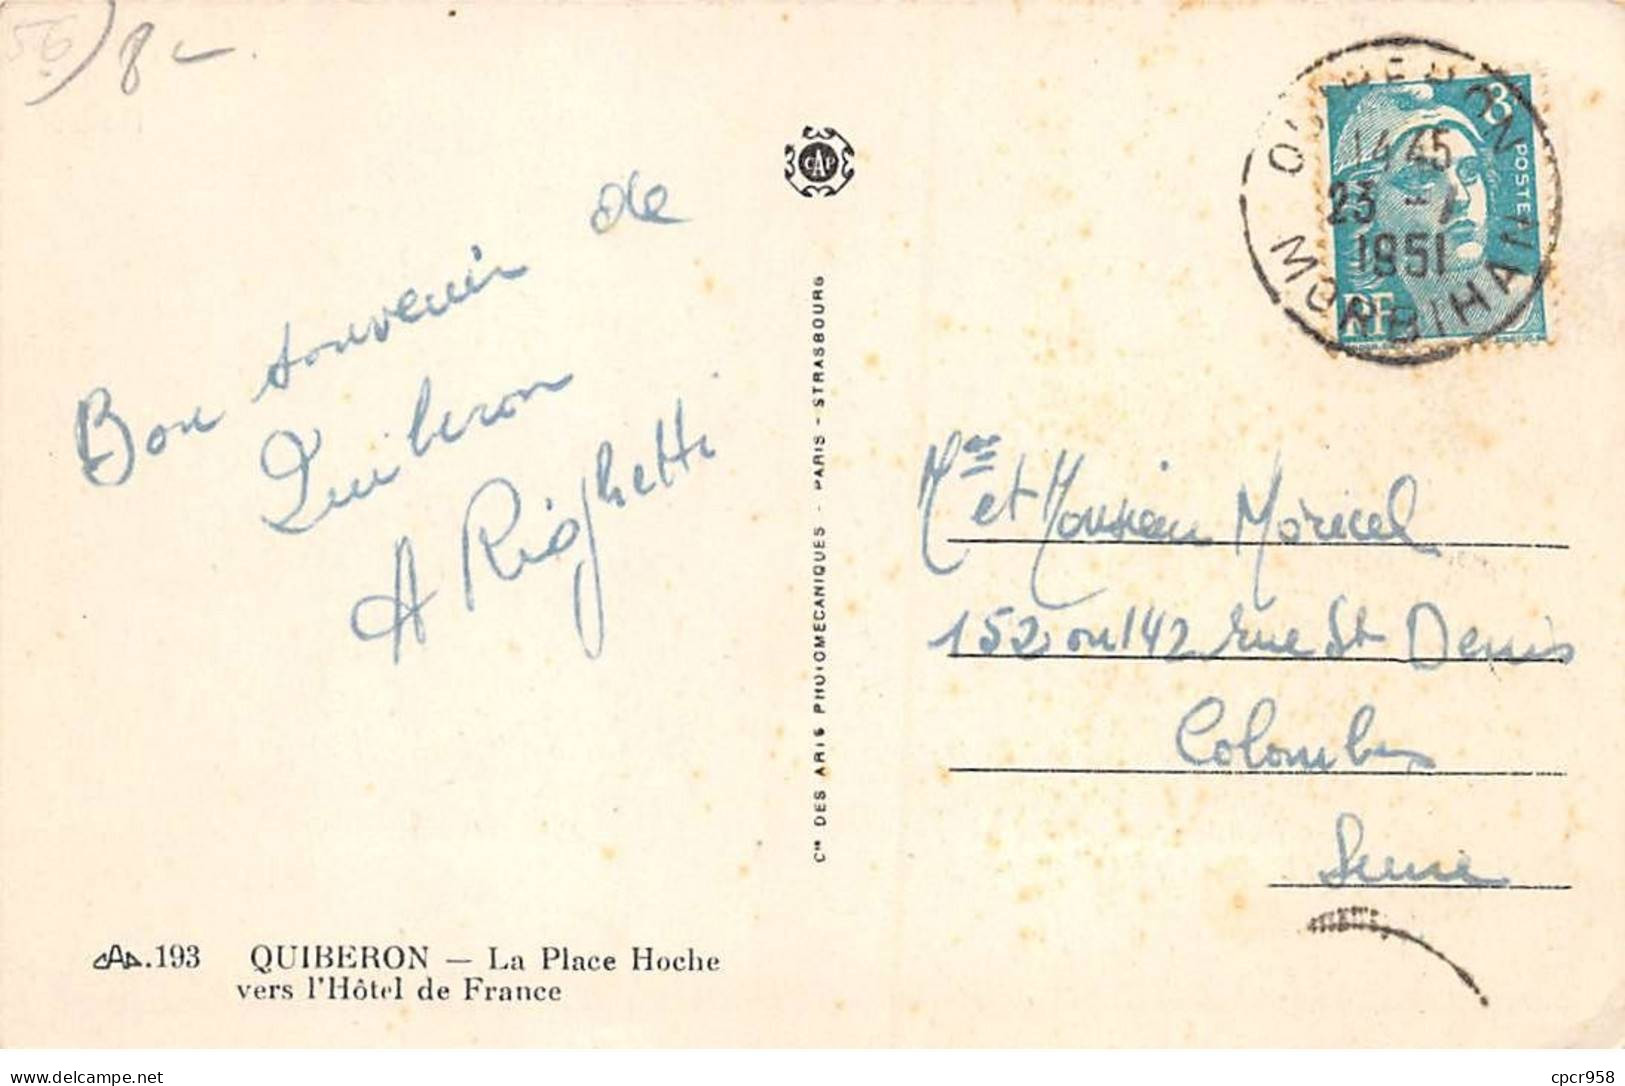 56) 8-
CAP
8F
POSTES
RF
QUIBERON
14 45
23 - 7
1951
MORBIHAN
Bon souvenir de
Quiberon
A Righetti
Cie DES ARTS PHOTOMECANIQUES - PARIS - STRASBOURG
Mme et Monsieur Moricel
152 ou 142 rue St Denis
Colombes
Seine
CAP.193 QUIBERON — La Place Hoche
vers l'Hôtel de France
delcampe.net
cpcr958